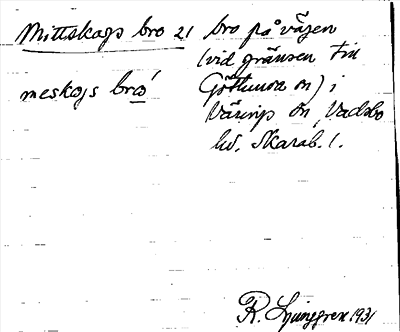 Mittskogs bro 21 bro på vägen
(vid gränsen till
Götlunda sn) i
meskogs bro´
Värings sn, Vadsbo
hd. Skarab. l.
R. Ljunggren 1931